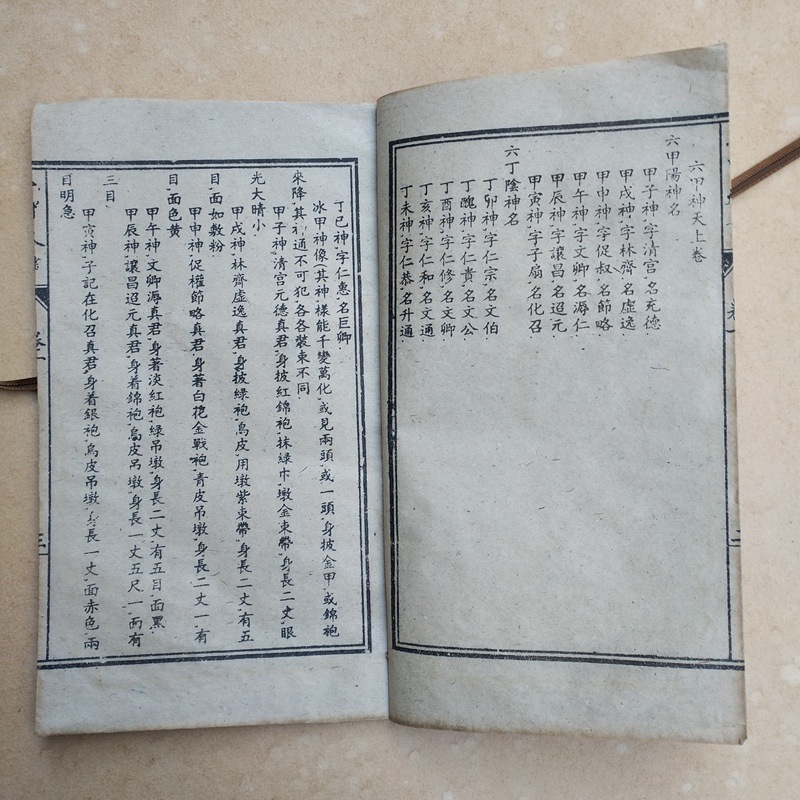 六甲神天上卷
六甲陽神名
甲子神,字清宫,名充德
甲戌神,字林齋,名虛逸
甲申神,字促叔,名節略
甲午神,字文卿,名溽仁
甲辰神,字讓昌,名迢元
甲寅神,字子扇,名化召
六丁陰神名
丁卯神,字仁宗,名文伯
丁醜神,字仁貴,名文公
丁酉神,字仁修,名文卿
丁亥神,字仁和,名文通
丁未神,字仁恭,名升通
丁已神,字仁惠,名巨卿
冰甲神像(其神樣能千變萬化,或見兩頭,或一頭,身披金甲,或錦袍
來降,其神通不可犯各各裝束不同
甲子神,清宫元德真君,身披紅錦袍,抹綠巾,墩金束帶,身長二丈,眼
光大晴小
甲戌神,林齊虛逸真君,身披綠袍,烏皮,用墩紫束帶,身長二丈,有五
目,面如敷粉
甲申神,促權節略真君,身著白花金戰袍,青皮吊墩,身長二丈一,有
目,面色黄
甲午神,文卿溽真君,身著淡紅袍,綠吊墩,身長二丈,有五目,面黑
甲辰神,讓昌迢元真君,身着錦袍,烏皮吊墩,身長一丈五尺一,面有
三目
甲寅神,子記在化召真君,身着銀袍,烏皮吊墩,身長一丈,面赤色,兩
目明急
三
二